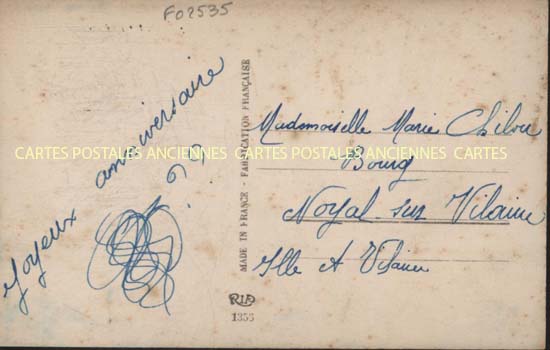 F02535
Joyeux anniversaire
MADE IN FRANCE - FABRICATION FRANÇAISE
Mademoiselle Marie Chilou
CARTES POSTALES ANCIENNES CARTES POSTALES ANCIENNES COM
Bourg
Noyal-sur Vilaine
Ille et Vilaine
1356